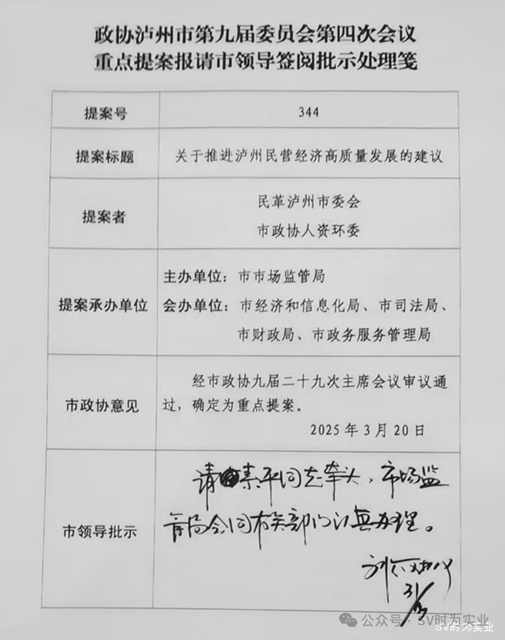 政协泸州市第九届委员会第四次会议
重点提案报请市领导签阅批示处理笺
提案号
344
提案标题
关于推进泸州民营经济高质量发展的建议
提案者
民革泸州市委会
市政协人资环委
提案承办单位
主办单位：市市场监管局
会办单位：市经济和信息化局、市司法局、
市财政局、市政务服务管理局
市政协意见
经市政协九届二十九次主席会议审议通
过，确定为重点提案。
2025年3月20日
市领导批示
请素平同志牵头，市场监
管局会同有关部门认真办理。
31/3
公众号·SV时为实业
SV时为实业